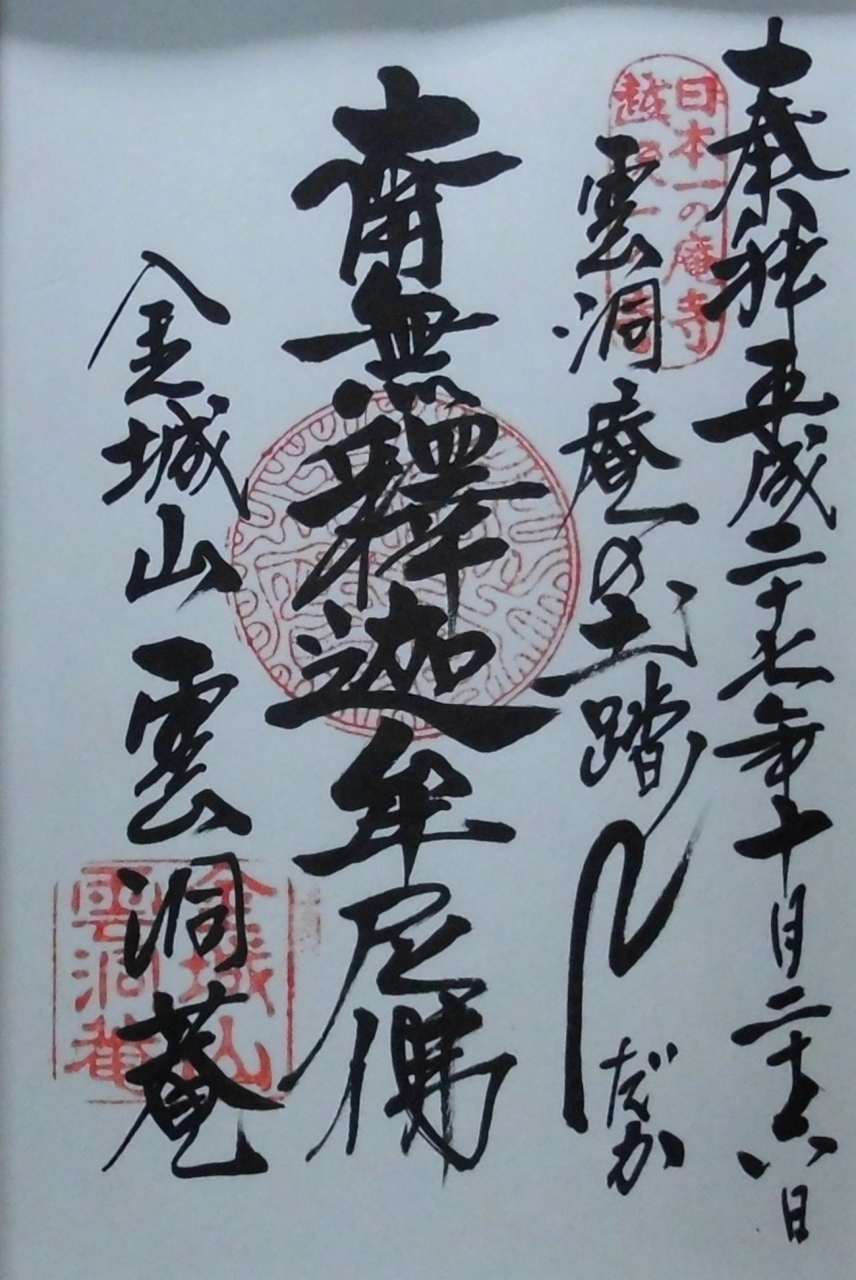 奉拝 平成二十七年十月二十六日
日本一の庵寺
越後一の
雲洞庵の土踏んだか
南無釋迦牟尼佛
金城山 雲洞菴
金城山
雲洞菴